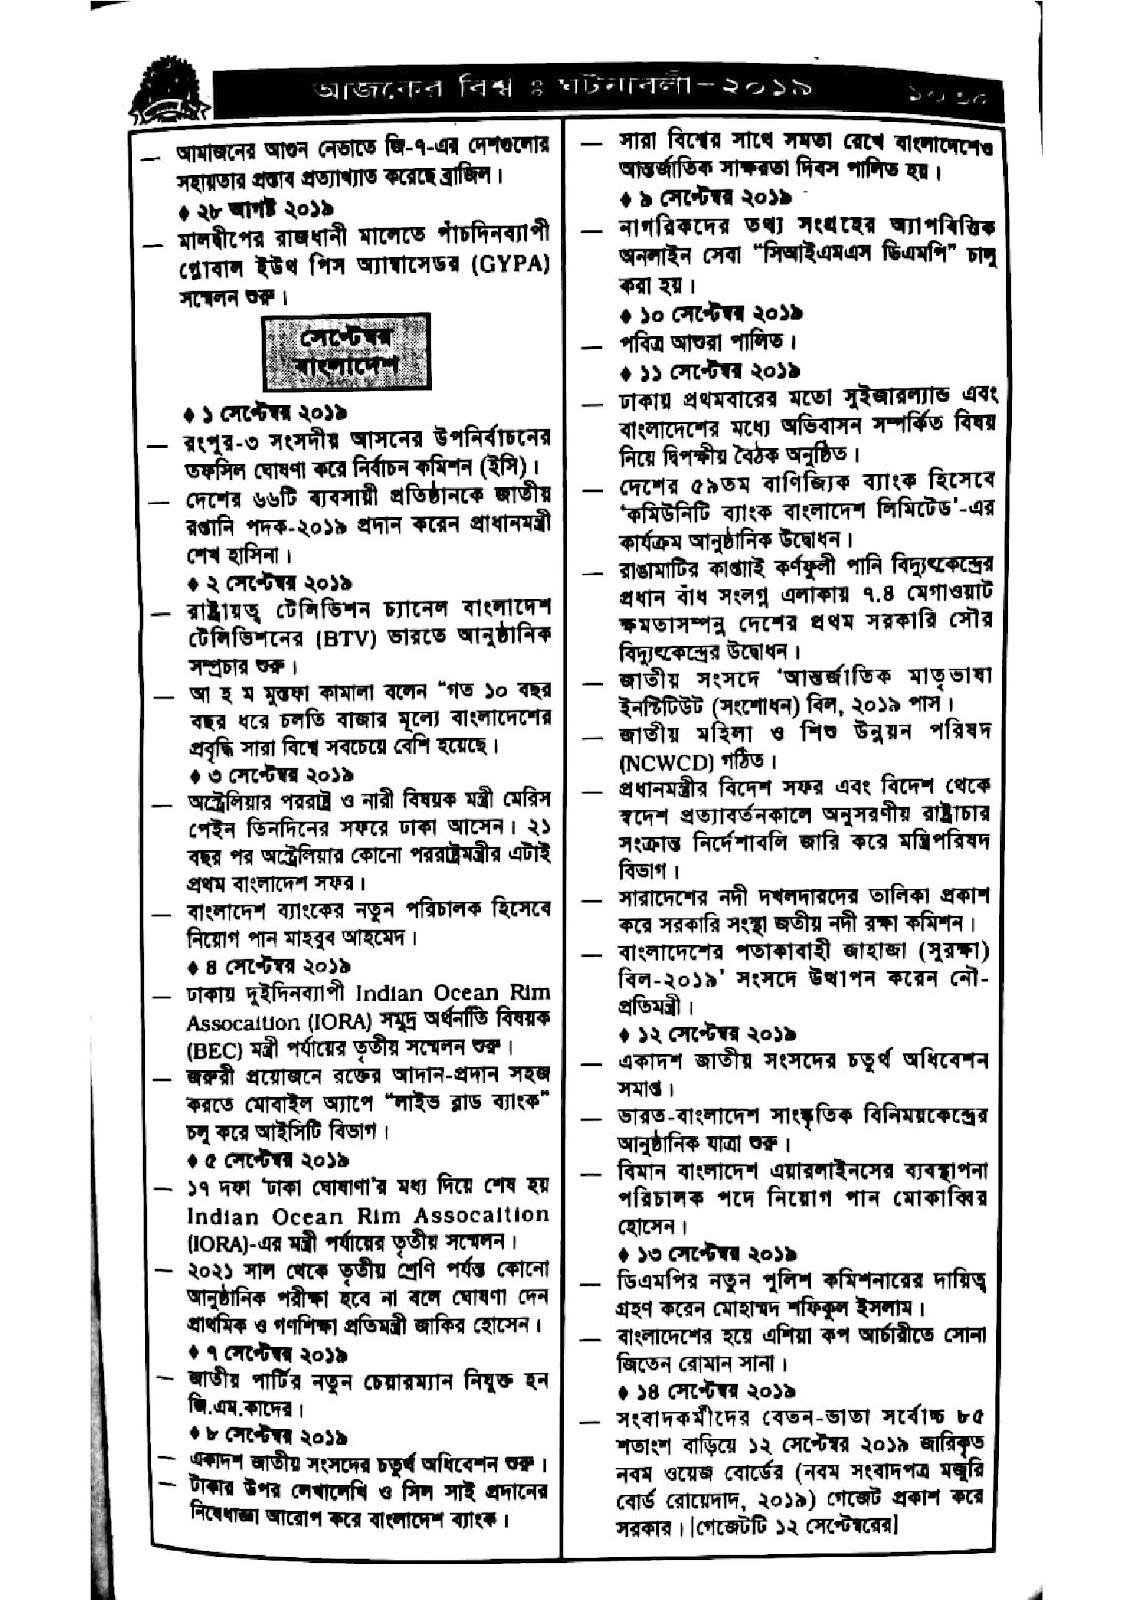 আজকের বিশ্ব ঃ ঘটনাবলী-২০১৯
— আমাজনের আগুন নেভাতে জি-৭-এর দেশগুলোর
সহায়তার প্রস্তাব প্রত্যাখ্যাত করেছে ব্রাজিল।
♦ ২৮ আগষ্ট ২০১৯
— মালদ্বীপের রাজধানী মালেতে পাঁচদিনব্যাপী
গ্লোবাল ইউথ পিস অ্যাম্বাসেডর (GYPA)
সম্মেলন শুরু।
সেপ্টেম্বর
বাংলাদেশ
♦ ১ সেপ্টেম্বর ২০১৯
— রংপুর-৩ সংসদীয় আসনের উপনির্বাচনের
তফসিল ঘোষণা করে নির্বাচন কমিশন (ইসি)।
— দেশের ৬৬টি ব্যবসায়ী প্রতিষ্ঠানকে জাতীয়
রপ্তানি পদক-২০১৯ প্রদান করেন প্রাধানমন্ত্রী
শেখ হাসিনা।
♦ ২ সেপ্টেম্বর ২০১৯
— রাষ্ট্রায়ত্ব টেলিভিশন চ্যানেল বাংলাদেশ
টেলিভিশনের (BTV) ভারতে আনুষ্ঠানিক
সম্প্রচার শুরু।
— আ হ ম মুস্তফা কামালা বলেন “গত ১০ বছর
বছর ধরে চলতি বাজার মূল্যে বাংলাদেশের
প্রবৃদ্ধি সারা বিশ্বে সবচেয়ে বেশি হয়েছে।
♦ ৩ সেপ্টেম্বর ২০১৯
— অস্ট্রেলিয়ার পররাষ্ট্র ও নারী বিষয়ক মন্ত্রী মেরিস
পেইন তিনদিনের সফরে ঢাকা আসেন। ২১
বছর পর অস্ট্রেলিয়ার কোনো পররাষ্ট্রমন্ত্রীর এটাই
প্রথম বাংলাদেশ সফর।
— বাংলাদেশ ব্যাংকের নতুন পরিচালক হিসেবে
নিয়োগ পান মাহবুব আহমেদ।
♦ ৪ সেপ্টেম্বর ২০১৯
— ঢাকায় দুইদিনব্যাপী Indian Ocean Rim
Assocaition (IORA) সমুদ্র অর্থনীতি বিষয়ক
(BEC) মন্ত্রী পর্যায়ের তৃতীয় সম্মেলন শুরু।
— জরুরী প্রয়োজনে রক্তের আদান-প্রদান সহজ
করতে মোবাইল অ্যাপে “লাইভ ব্লাড ব্যাংক”
চলু করে আইসিটি বিভাগ।
♦ ৫ সেপ্টেম্বর ২০১৯
— ১৭ দফা ‘ঢাকা ঘোষণা’র মধ্য দিয়ে শেষ হয়
Indian Ocean Rim Assocaition
(IORA)-এর মন্ত্রী পর্যায়ের তৃতীয় সম্মেলন।
— ২০২১ সাল থেকে তৃতীয় শ্রেণি পর্যন্ত কোনো
আনুষ্ঠানিক পরীক্ষা হবে না বলে ঘোষণা দেন
প্রাথমিক ও গণশিক্ষা প্রতিমন্ত্রী জাকির হোসেন।
♦ ৭ সেপ্টেম্বর ২০১৯
— জাতীয় পার্টির নতুন চেয়ারম্যান নিযুক্ত হন
জি.এম.কাদের।
♦ ৮ সেপ্টেম্বর ২০১৯
— একাদশ জাতীয় সংসদের চতুর্থ অধিবেশন শুরু।
— টাকার উপর লেখালেখি ও সিল সাই প্রদানের
নিষেধাজ্ঞা আরোপ করে বাংলাদেশ ব্যাংক।
— সারা বিশ্বের সাথে সমতা রেখে বাংলাদেশেও
আন্তর্জাতিক সাক্ষরতা দিবস পালিত হয়।
♦ ৯ সেপ্টেম্বর ২০১৯
— নাগরিকদের তথ্য সংগ্রহের অ্যাপবিত্তিক
অনলাইন সেবা “সিআইএমএস ডিএমপি” চালু
করা হয়।
♦ ১০ সেপ্টেম্বর ২০১৯
— পবিত্র আশুরা পালিত।
♦ ১১ সেপ্টেম্বর ২০১৯
— ঢাকায় প্রথমবারের মতো সুইজারল্যান্ড এবং
বাংলাদেশের মধ্যে অভিবাসন সম্পর্কিত বিষয়
নিয়ে দ্বিপক্ষীয় বৈঠক অনুষ্ঠিত।
— দেশের ৫৯তম বাণিজ্যিক ব্যাংক হিসেবে
‘কমিউনিটি ব্যাংক বাংলাদেশ লিমিটেড’-এর
কার্যক্রম আনুষ্ঠানিক উদ্বোধন।
— রাঙামাটির কাপ্তাই কর্ণফুলী পানি বিদ্যুৎকেন্দ্রের
প্রধান বাঁধ সংলগ্ন এলাকায় ৭.৪ মেগাওয়াট
ক্ষমতাসম্পন্ন দেশের প্রথম সরকারি সৌর
বিদ্যুৎকেন্দ্রের উদ্বোধন।
— জাতীয় সংসদে ‘আন্তর্জাতিক মাতৃভাষা
ইনস্টিটিউট (সংশোধন) বিল, ২০১৯ পাস।
— জাতীয় মহিলা ও শিশু উন্নয়ন পরিষদ
(NCWCD) গঠিত।
— প্রধানমন্ত্রীর বিদেশ সফর এবং বিদেশ থেকে
স্বদেশ প্রত্যাবর্তনকালে অনুসরণীয় রাষ্ট্রাচার
সংক্রান্ত নির্দেশাবলি জারি করে মন্ত্রিপরিষদ
বিভাগ।
— সারাদেশের নদী দখলদারদের তালিকা প্রকাশ
করে সরকারি সংস্থা জতীয় নদী রক্ষা কমিশন।
— বাংলাদেশের পতাকাবাহী জাহাজা (সুরক্ষা)
বিল-২০১৯’ সংসদে উত্থাপন করেন নৌ-
প্রতিমন্ত্রী।
♦ ১২ সেপ্টেম্বর ২০১৯
— একাদশ জাতীয় সংসদের চতুর্থ অধিবেশন
সমাপ্ত।
— ভারত-বাংলাদেশ সাংস্কৃতিক বিনিময়কেন্দ্রের
আনুষ্ঠানিক যাত্রা শুরু।
— বিমান বাংলাদেশ এয়ারলাইনসের ব্যবস্থাপনা
পরিচালক পদে নিয়োগ পান মোকাব্বির
হোসেন।
♦ ১৩ সেপ্টেম্বর ২০১৯
— ডিএমপির নতুন পুলিশ কমিশনারের দায়িত্ব
গ্রহণ করেন মোহাম্মদ শফিকুল ইসলাম।
— বাংলাদেশের হয়ে এশিয়া কপ আর্চারীতে সোনা
জিতেন রোমান সানা।
♦ ১৪ সেপ্টেম্বর ২০১৯
— সংবাদকর্মীদের বেতন-ভাতা সর্বোচ্চ ৮৫
শতাংশ বাড়িয়ে ১২ সেপ্টেম্বর ২০১৯ জারিকৃত
নবম ওয়েজ বোর্ডের (নবম সংবাদপত্র মজুরি
বোর্ড রোয়েদাদ, ২০১৯) গেজেট প্রকাশ করে
সরকার। [গেজেটটি ১২ সেপ্টেম্বরের]